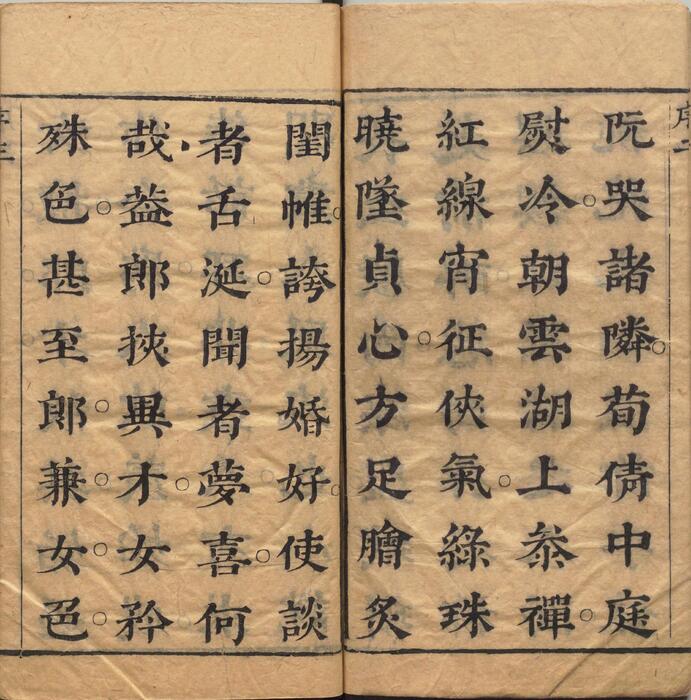 序二
阮哭諸隣荀倩中庭
熨冷朝雲湖上叅禪
紅線宵征俠氣綠珠
曉墜貞心方足膾炙
閨帷誇揚婚好使談
者舌涎聞者夢喜何
哉葢郎挾異才女矜
殊色甚至郎兼女色
序三